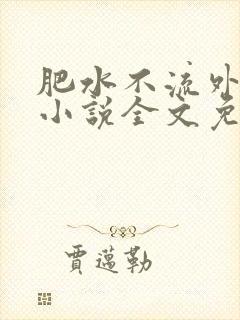 肥水不流外
小說全文免
賈邁勒